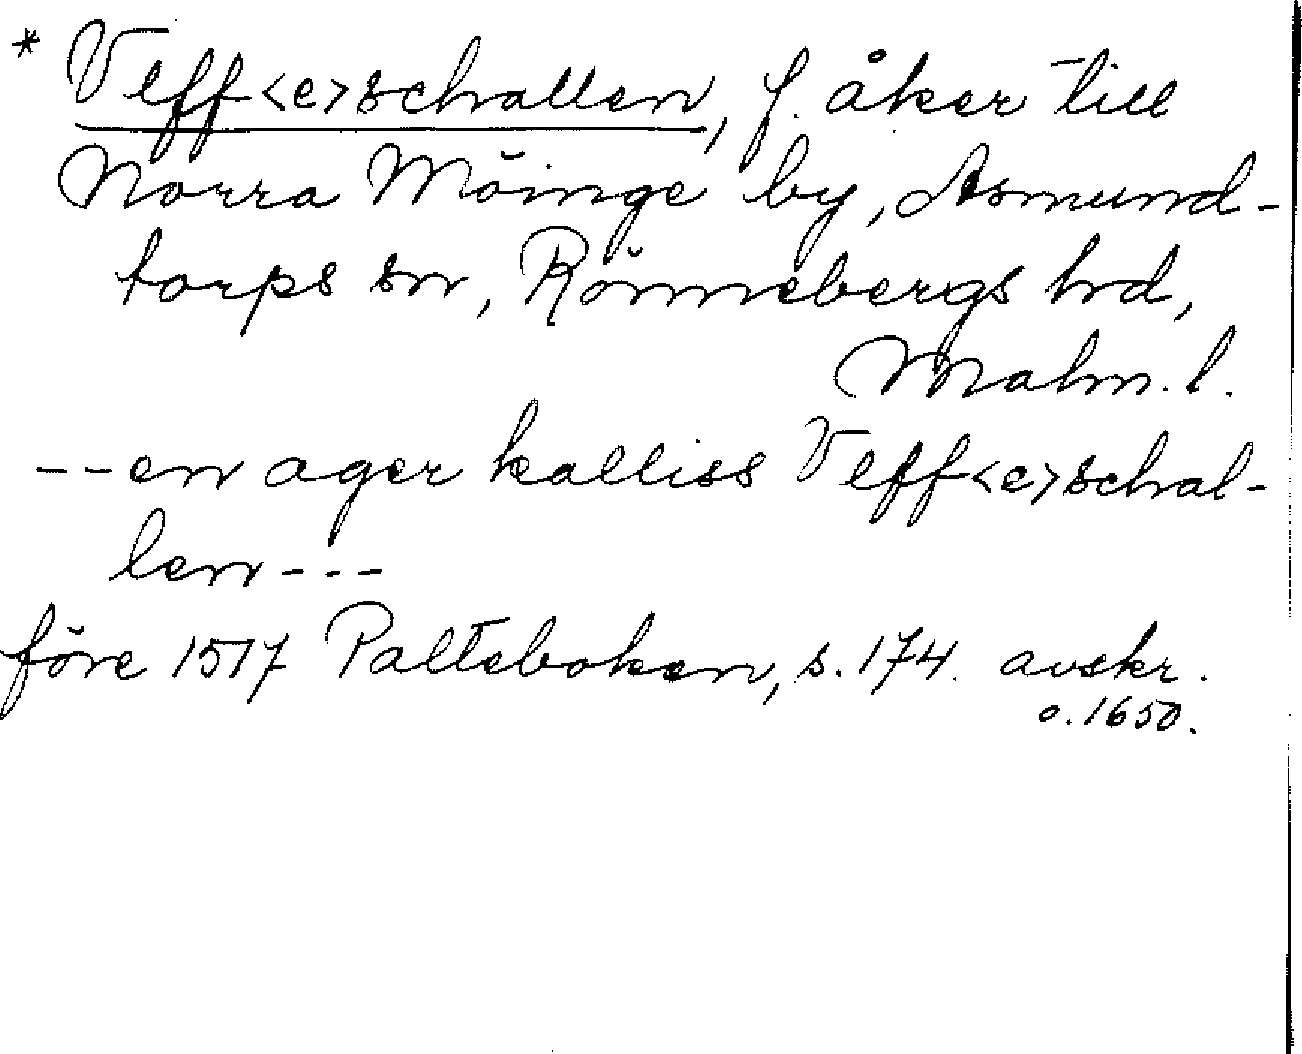 * Veff<e>schallen, f. åker till
Norra Möinge by, Asmund-
torps sn, Rönnebergs hd,
Malm. l.
--en ager kalliss Veff<e>schal-
len---
före 1517 Palteboken, s. 174. avskr.
o. 1650.